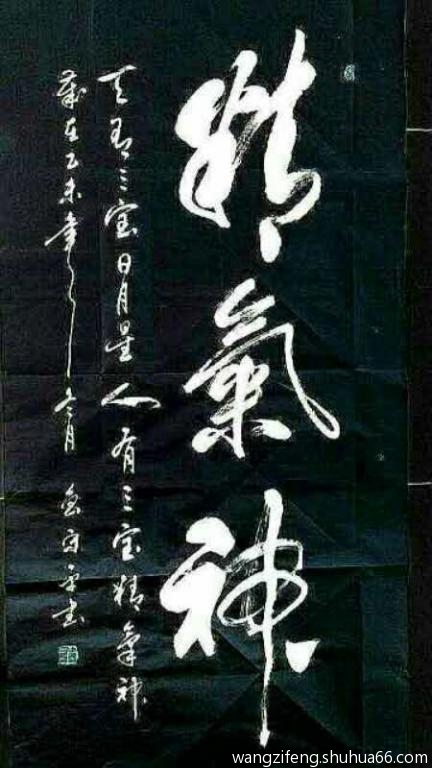 精氣神
天有三宝日月星人有三宝精氣神
歲在乙未年冬月
wangzifeng.shuhua66.com